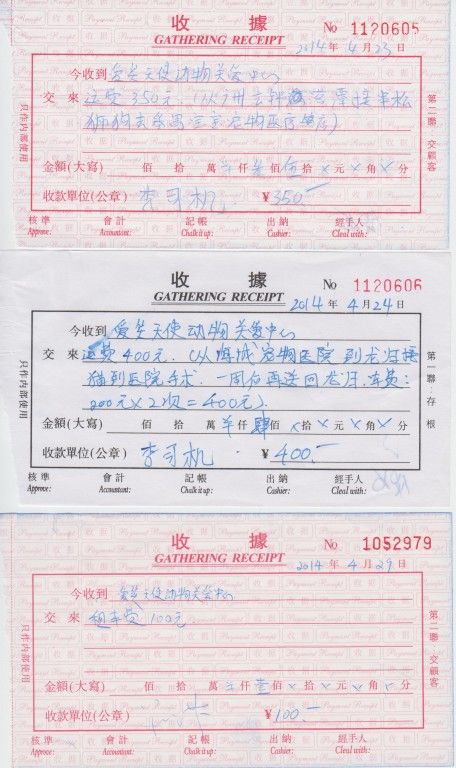 收據
GATHERING RECEIPT
No 1120605
2014 年 4 月 23 日
今收到 爱生天使动物关爱中心
交來 运费350元
金額(大寫) 佰 拾 萬 仟 叁 佰 伍 拾 元 角 分
收款單位(公章) 李司机 ¥350.—
只作内部使用
第二聯·交顧客
核準 會計 記帳 出納 經手人
Approve: Accountant: Chalk it up: Cashier: Cleal with:
收據
GATHERING RECEIPT
No 1120606
2014 年 4 月 24 日
今收到 爱生天使动物关爱中心
交來 运费400元、(从海诚宠物医院到龙归接
猫到医院手术.一周后再送回龙归.车费:
200元×2次=400元)
金額(大寫) 佰 拾 萬 仟 肆 佰 × 拾 × 元 × 角 × 分
收款單位(公章) 李司机 ¥400.—
只作内部使用
第一聯·存根
核準 會計 記帳 出納 經手人
Approve: Accountant: Chalk it up: Cashier: Cleal with:
收據
GATHERING RECEIPT
No 1052979
2014 年 4 月 29 日
今收到 爱生天使动物关爱中心
交來 租车费100元
金額(大寫) 佰 拾 萬 仟 壹 佰 × 拾 × 元 × 角 分
收款單位(公章) ¥100.—
只作内部使用
第二聯·交顧客
核準 會計 記帳 出納 經手人
Approve: Accountant: Chalk it up: Cashier: Cleal with: